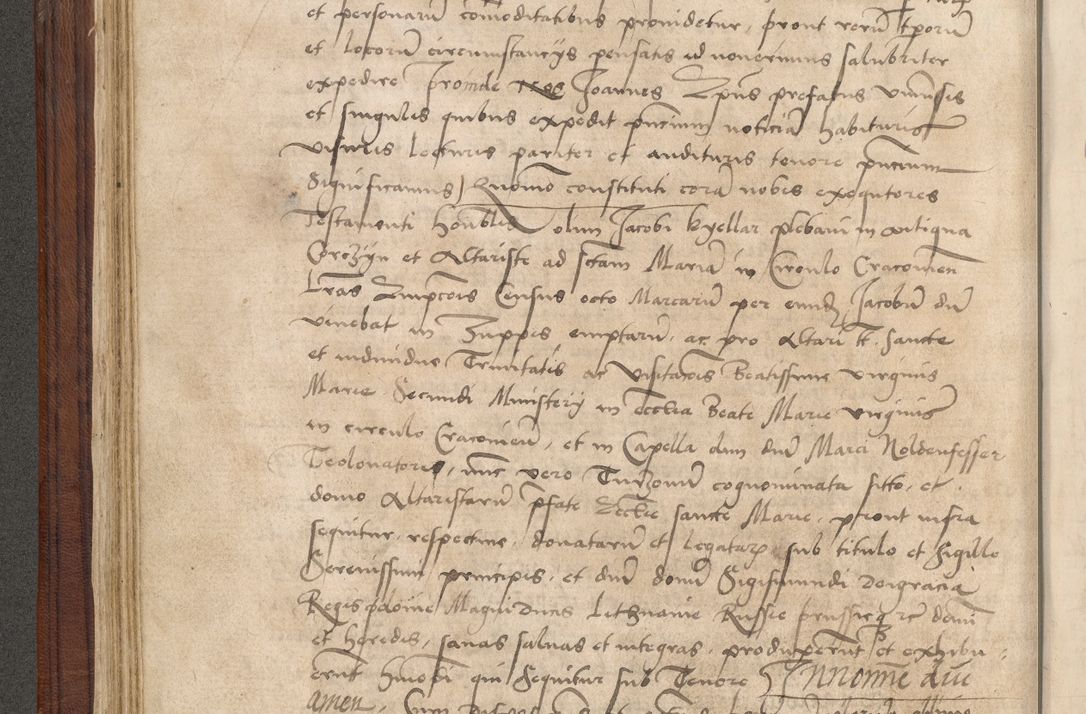 et personarũ cõmoditatibus prouidetur, prout rerũ tp̃orũ
et locorũ circumstancijs pensatis id nouerimus salubriter
expedire Proinde nos Joannes Ep̃us prefatus vniũsis
et singulis quibus expedit pñcium noticiã habituris
visuris lecturis pariter et audituris tenore pñcium
Significamus) Quomõ constituti corã nobis exequtores
Testamenti honblis olim Jacobi kyellar plebani in antiqua
Corczyn et Altariste ad sctam Mariã in Circulo Cracouien
Lr̃as Empcõis Census octo Marcarũ per eund Jacobũ dũ
viuebat in Zuppis emptarũ, ac pro Altari tt. sancte
et indiuidue Trinitatis ac visitacõis Beatissime virginis
Marie Secundi Ministerij in ecclia Beate Marie virginis
in circulo Cracouien, et in Capella olim dñi Marci Noldenfesser
Teolonatoris, nũc vero Turzonũ cognominata sitto, et
domo Altaristarũ p̃fate Ecctie sancte Marie, prout infra
sequitur, respectiue, donatarũ et legatarp sub titulo et Sigillo
Serenissimi principis, et dñi domi Sigismundi Deigracia
Regis polonie Magni Ducis Lithuanie Russie prussieq rc̃ domi
et heredis, sanas saluas et integras, produxperũt et exhibu-
erũt hmõi qui Sequitur sub Tenore Jn nomine dñi
amen. Cum